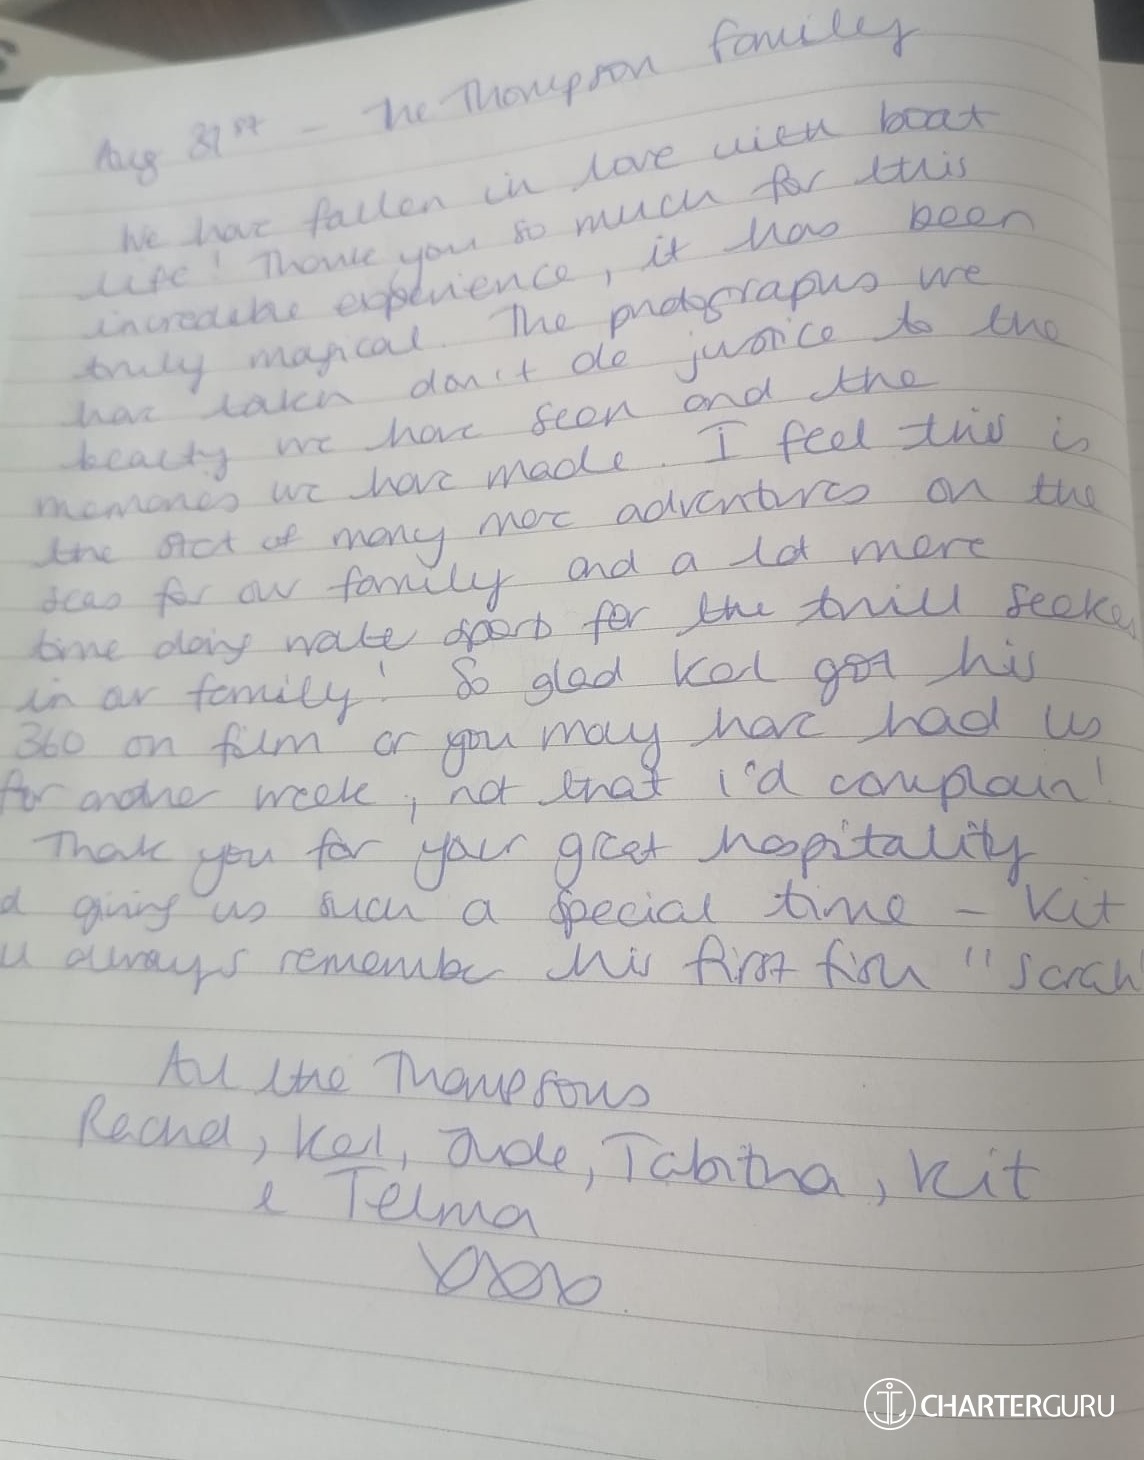 Aug 31st - The Thompson family
We have fallen in love with boat
life! Thank you so much for this
incredible experience, it has been
truly magical. The photographs we
have taken don't do justice to the
beauty we have seen and the
memories we have made. I feel this is
the start of many more adventures on the
seas for our family and a lot more
time doing water sports for the thrill seeke
in our family! So glad Kel got his
360 on film or you may have had us
for another week, not that i'd complain!
Thank you for your great hospitality
d giving us such a special time - Kit
ll always remember his first fish "Sarah
All the Thompsons
Rachel, Kel, Jude, Tabitha, Kit
& Telma
xoxo
CHARTERGURU